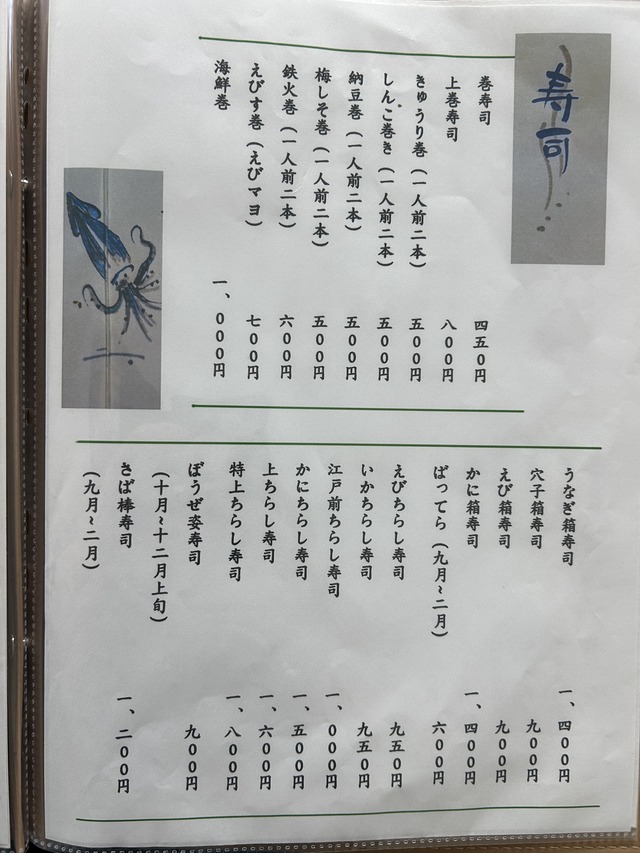 寿司
巻寿司 四五〇円
上巻寿司 八〇〇円
きゅうり巻（一人前二本） 五〇〇円
しんこ巻き（一人前二本） 五〇〇円
納豆巻（一人前二本） 五〇〇円
梅しそ巻（一人前二本） 五〇〇円
鉄火巻（一人前二本） 六〇〇円
えびす巻（えびマヨ） 七〇〇円
海鮮巻 一、〇〇〇円
うなぎ箱寿司 一、四〇〇円
穴子箱寿司 九〇〇円
えび箱寿司 九〇〇円
かに箱寿司 一、四〇〇円
ばってら（九月～二月） 六〇〇円
えびちらし寿司 九五〇円
いかちらし寿司 九五〇円
江戸前ちらし寿司 一、〇〇〇円
かにちらし寿司 一、五〇〇円
上ちらし寿司 一、六〇〇円
特上ちらし寿司 一、八〇〇円
ぼうぜ姿寿司 九〇〇円
（十月～十二月上旬）
さば棒寿司 一、二〇〇円
（九月～二月）